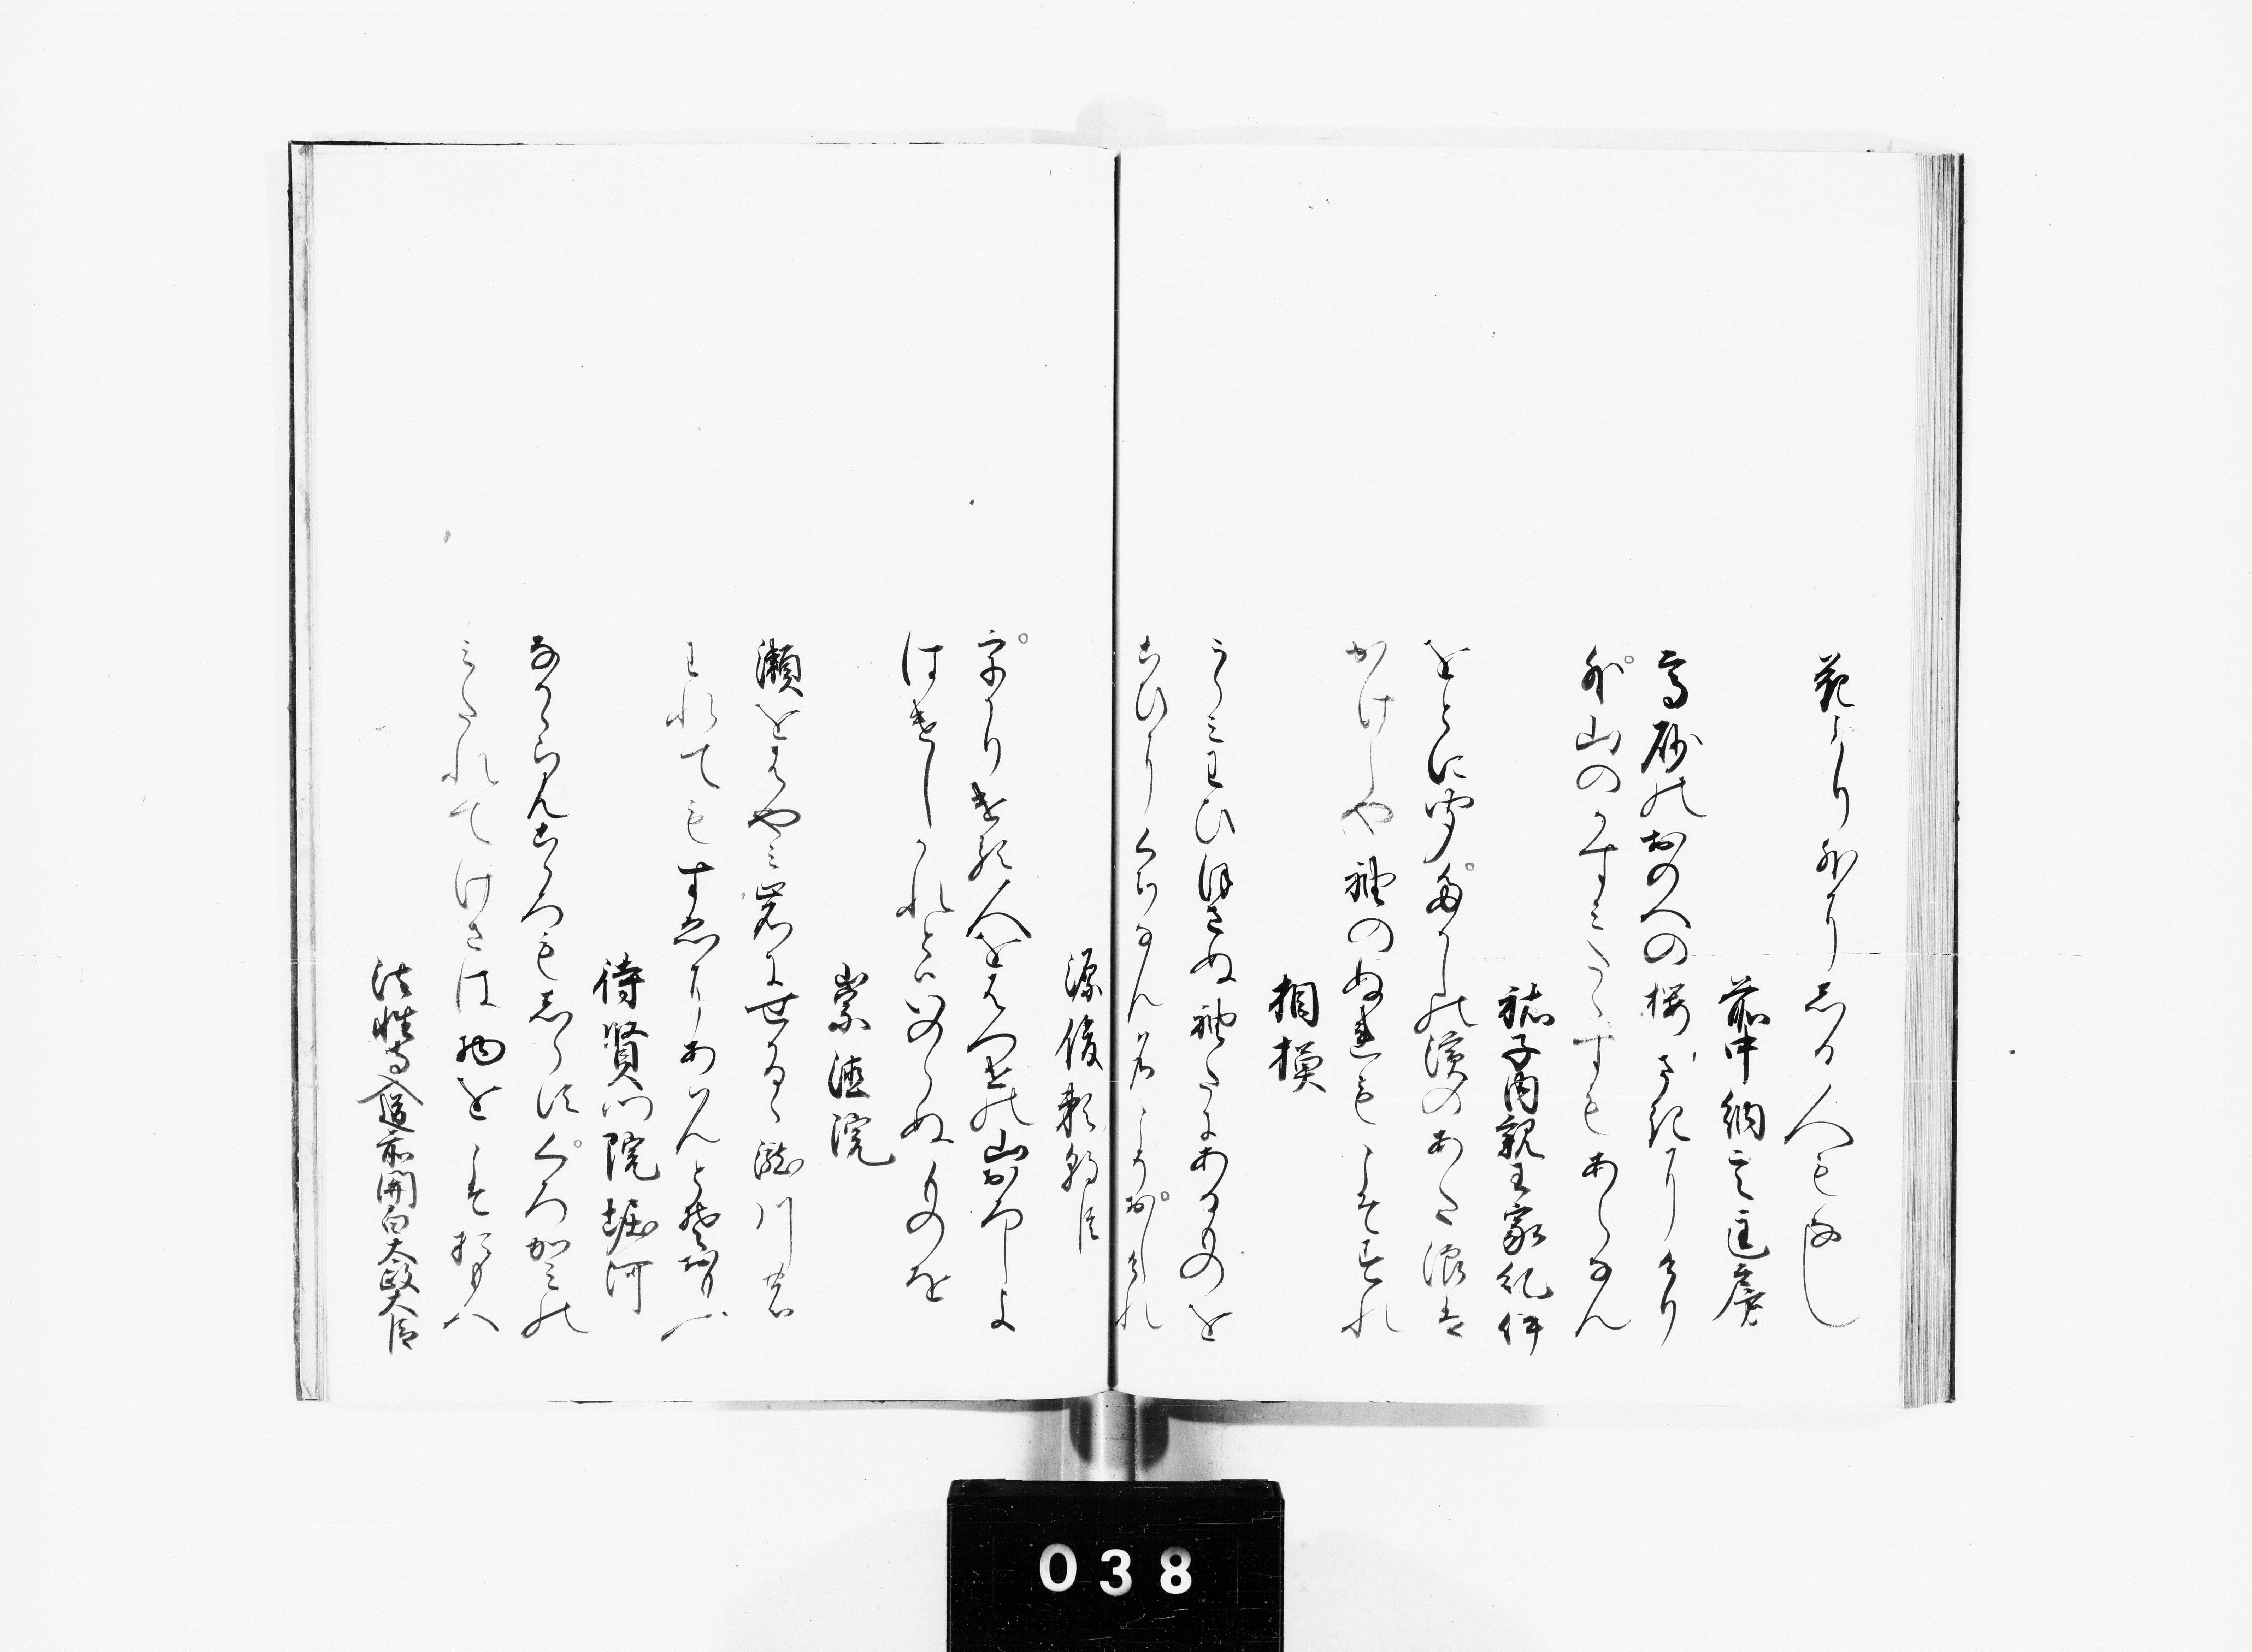 花より外にしる人もなし
前中納言匡房
高砂のおのへの桜さきにけり
外山のかすみたゝすもあらなん
祐子内親王家紀伊
をとに聞たかしの濱のあた浪は
かけしや袖のぬれもこそすれ
相摸
うらみわひほさぬ袖たにあるものを
こひにくちなん名こそおしけれ
源俊頼朝臣
うかりける人をはつせの山おろしよ
はけしかれとはいのらぬものを
崇徳院
瀬をはやみ岩にせかるゝ瀧川の
われてもすゑにあはんとそおもふ
待賢門院堀河
なかゝらんこゝろもしらすくろかみの
みたれてけさは物をこそおもへ
法性寺入道前関白太政大臣
038